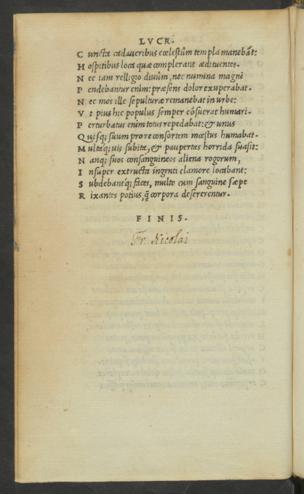 LVCR.
C uncta cadaueribus cœlestûm templa manebāt:
H ospitibus loca quæ complerant æditucntes.
N ec iam relligio diuûm, nec numina magni
P endebantur enim: præsens dolor exuperabat.
N ec mos ille sepulturæ remanebat in vrbe;
V t pius hic populus semper cōsuerat humari.
P erturbatus enim totus repedabat: & vnus
Q uisq; suum pro re consortem mœstus humabat.
M ultaq; uis subita, & paupertas horrida suasit:
N anq; suos consanguineos aliena rogorum,
I nsuper extructa ingenti clamore locabant:
S ubdebantq; faces, multo cum sanguine sæpe
R ixantes potius, q̄ corpora desererentur.
FINIS.
Fr. Nicolai